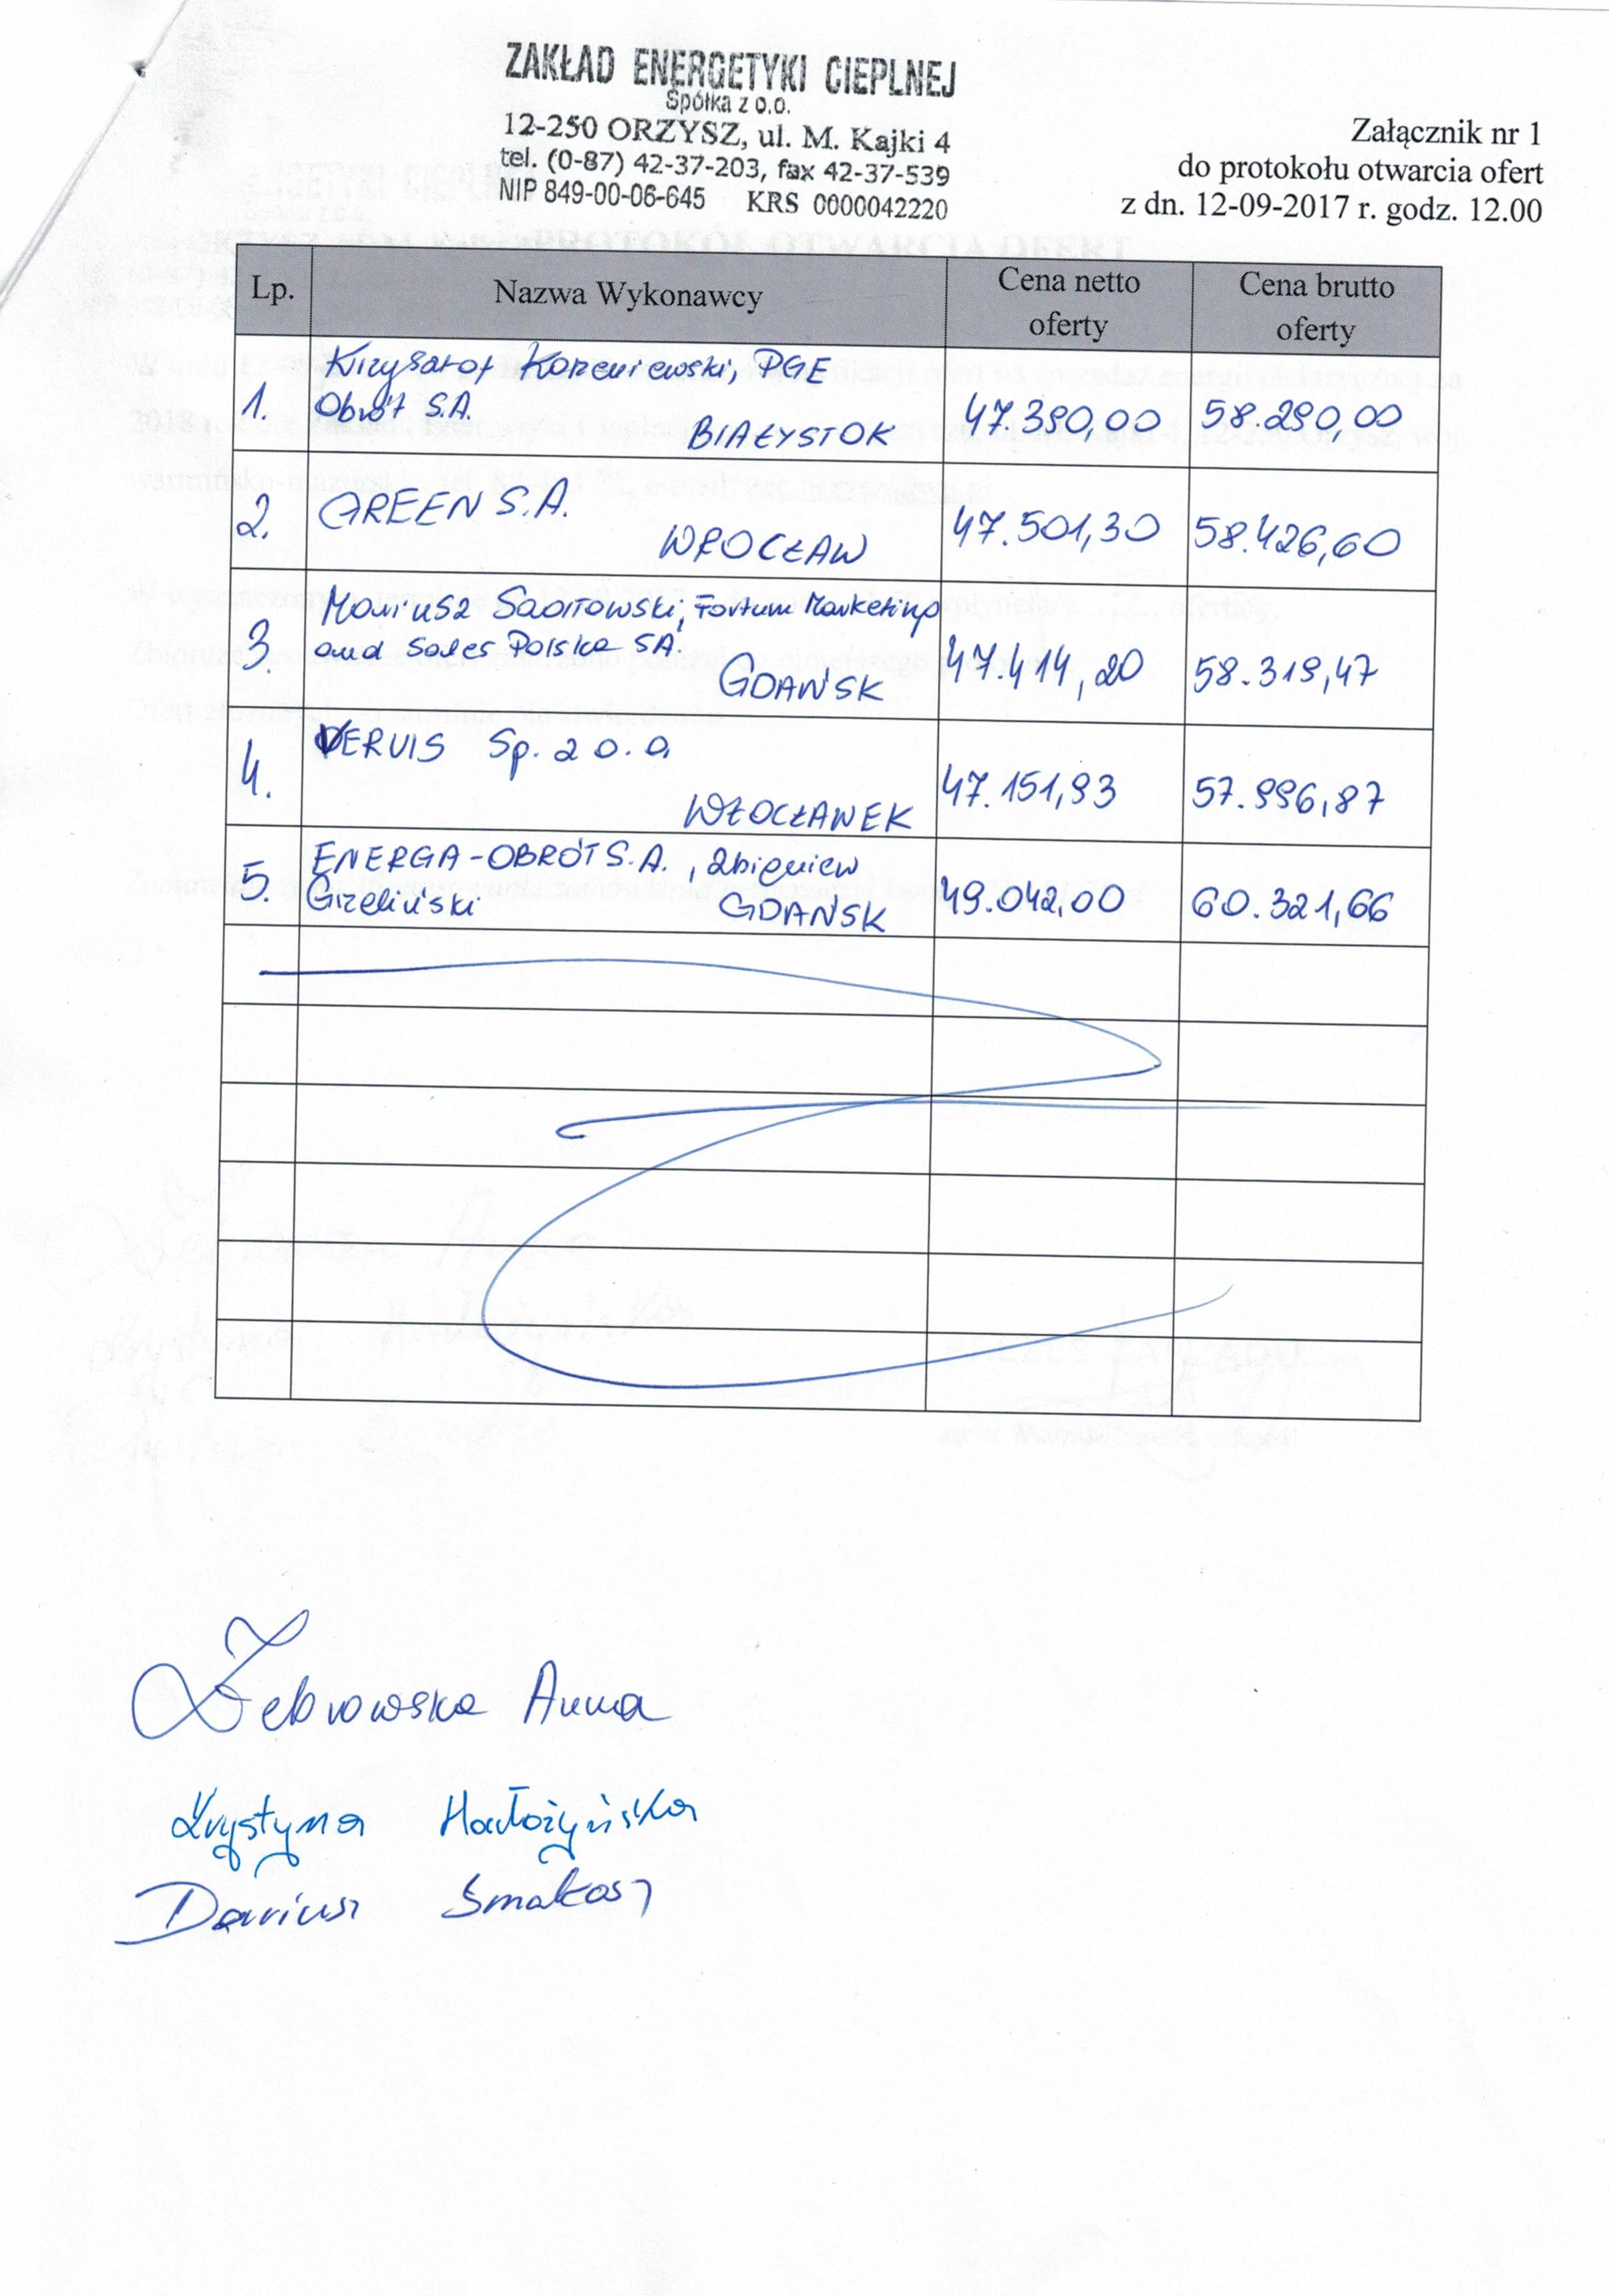 ZAKŁAD ENERGETYKI CIEPLNEJ
Spółka z o.o.
12-250 ORZYSZ, ul. M. Kajki 4
tel. (0-87) 42-37-203, fax 42-37-539
NIP 849-00-06-645 KRS 0000042220
Załącznik nr 1
do protokołu otwarcia ofert
z dn. 12-09-2017 r. godz. 12.00
Lp. Nazwa Wykonawcy Cena netto oferty Cena brutto oferty
1. Krzysztof Korzeniewski, PGE
Obrót S.A.
BIAŁYSTOK 47.390,00 58.290,00
2. GREEN S.A.
WROCŁAW 47.501,30 58.426,60
3. Mariusz Sadłowski, Fortum Marketing
and Sales Polska SA.
GDAŃSK 47.414,20 58.319,47
4. VERVIS Sp. z o.o.
WŁOCŁAWEK 47.151,93 57.996,87
5. ENERGA-OBRÓT S.A., Zbigniew
Grzeliński GDAŃSK 49.042,00 60.321,66
Żebrowska Anna
Krystyna
Dariusz